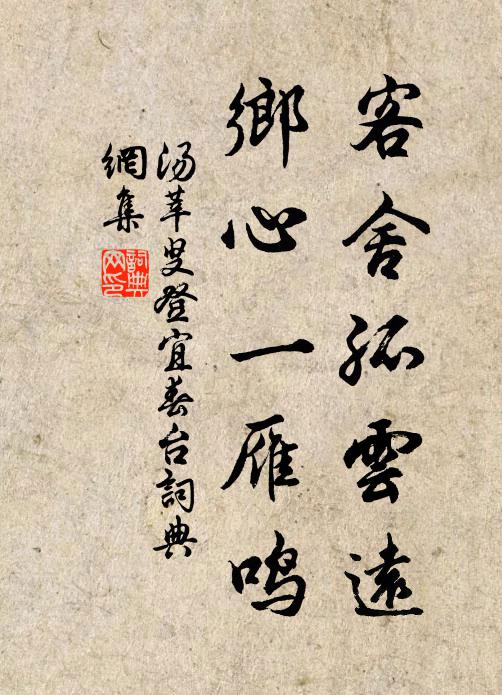 客舍孤雲遠
鄉心一雁鸣
汤莘叟登宜春台詞典
網集
詞典
网印